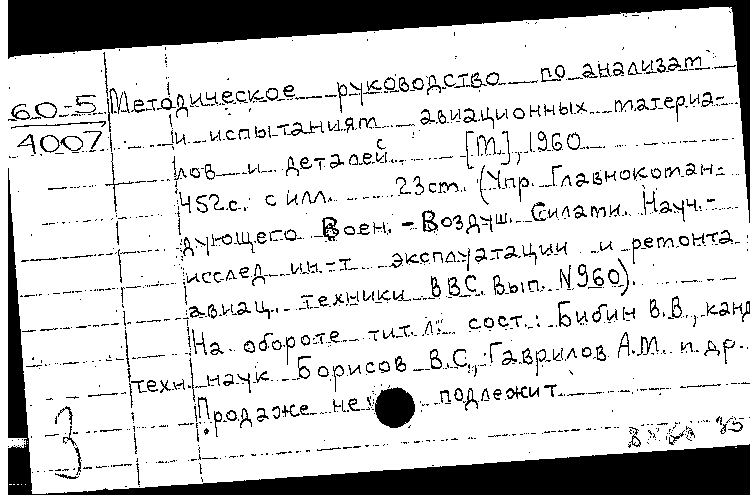 60-5 Методическое руководство по анализам
4007 и испытаниям авиационных материа-
лов и деталей. [М.], 1960
452с. с илл. 23см. (Упр. Главнокоман-
дующего Воен.-Воздуш. Силами. Науч.-
исслед. ин-т эксплуатации и ремонта
авиац. техники ВВС. Вып. N960).
На обороте тит. л.: сост.: Бибин В.В., канд
техн. наук Борисов В.С., Гаврилов А.М. и др.
Продаже не подлежит
3